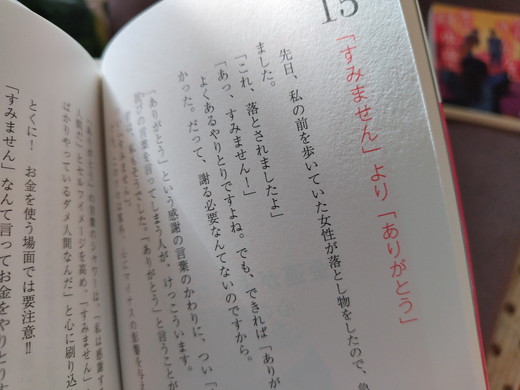 15
「すみません」より「ありがとう」
先日、私の前を歩いていた女性が落とし物をしたので、
ました。
「これ、落とされましたよ」
「あっ、すみません!」
よくあるやりとりですよね。でも、できれば「ありが
かった。だって、謝る必要なんてないのですから。
「ありがとう」という感謝の言葉のかわりに、つい「
びの言葉を言ってしまう人が、けっこういます。
私もそうでした。「ありがとう」と言うことが
」の言葉のシャワーは、「私は感謝す
人間だ」とセルフイメージを高め。「すみません」
ばかりやっているダメ人間なんだ」と心に刷り込
とくに! お金を使う場面では要注意!!
「すみません」なんて言ってお金をやりとりす